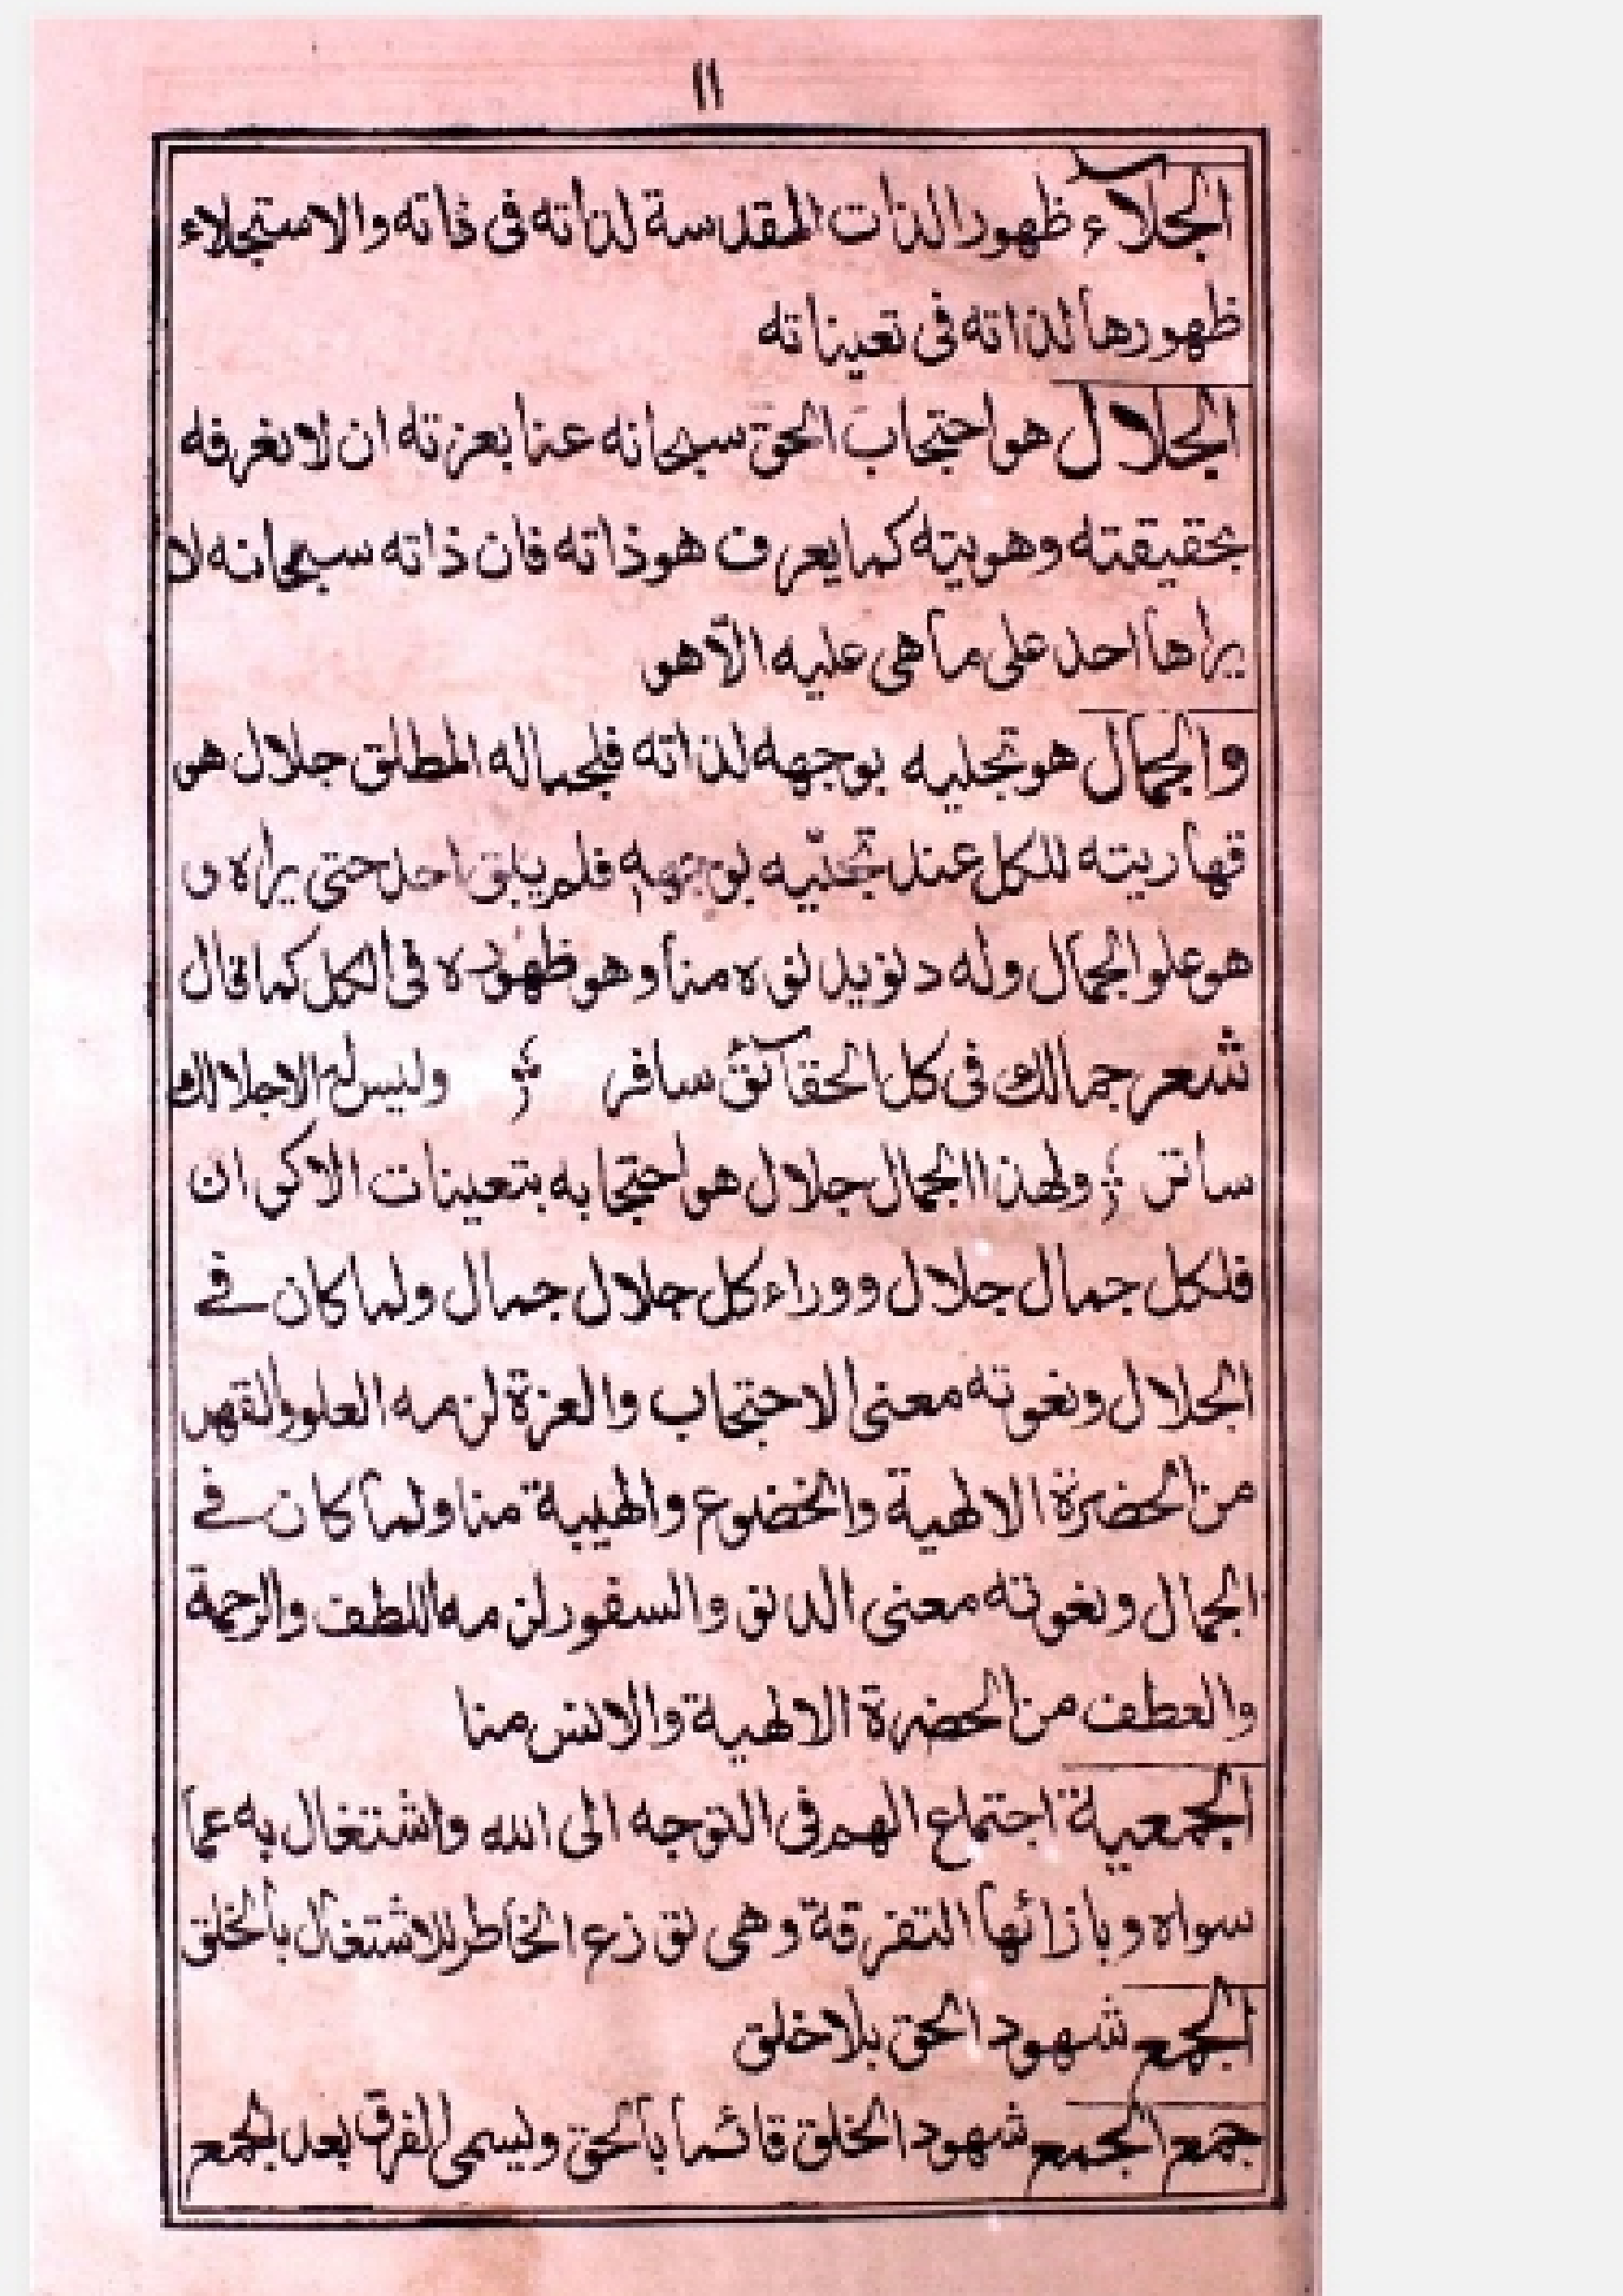 ١١
الجلاء ظهور الذات المقدسة لذاته فى ذاته والاستجلاء
ظهورها لذاته فى تعيناته
الجلال هو احتجاب الحق سبحانه عنا بعزته ان لا نعرفه
بحقيقته وهويته كما يعرف هو ذاته فان ذاته سبحانه لا
يراها احد على ما هى عليه الّا هو
والجمال هو تجليه بوجهه لذاته فلجماله المطلق جلال هو
قهاريته للكل عند تجليه بوجهه فلم يبق احد حتى يراه و
هو علو الجمال وله دنو يدنو به منا وهو ظهوره فى الكل كما قال
شعر جمالك فى كل الحقائق سافر وليس له الا جلالك
ساتر ولهذا الجمال جلال هو احتجابه بتعينات الاكوان
فلكل جمال جلال ووراء كل جلال جمال ولما كان في
الجلال ونعوته معنى الاحتجاب والعزة لزمه العلو والقهر
من الحضرة الالهية والخضوع والهيبة منا ولما كان في
الجمال ونعوته معنى الدنو والسفور لزمه اللطف والرحمة
والعطف من الحضرة الالهية والانس منا
الجمعية اجتماع الهم فى التوجه الى الله واشتغال به عما
سواه وبازائها التفرقة وهى توزع الخاطر للاشتغال بالخلق
الجمع شهود الحق بلا خلق
جمع الجمع شهود الخلق قائما بالحق ويسمى الفرق بعد الجمع